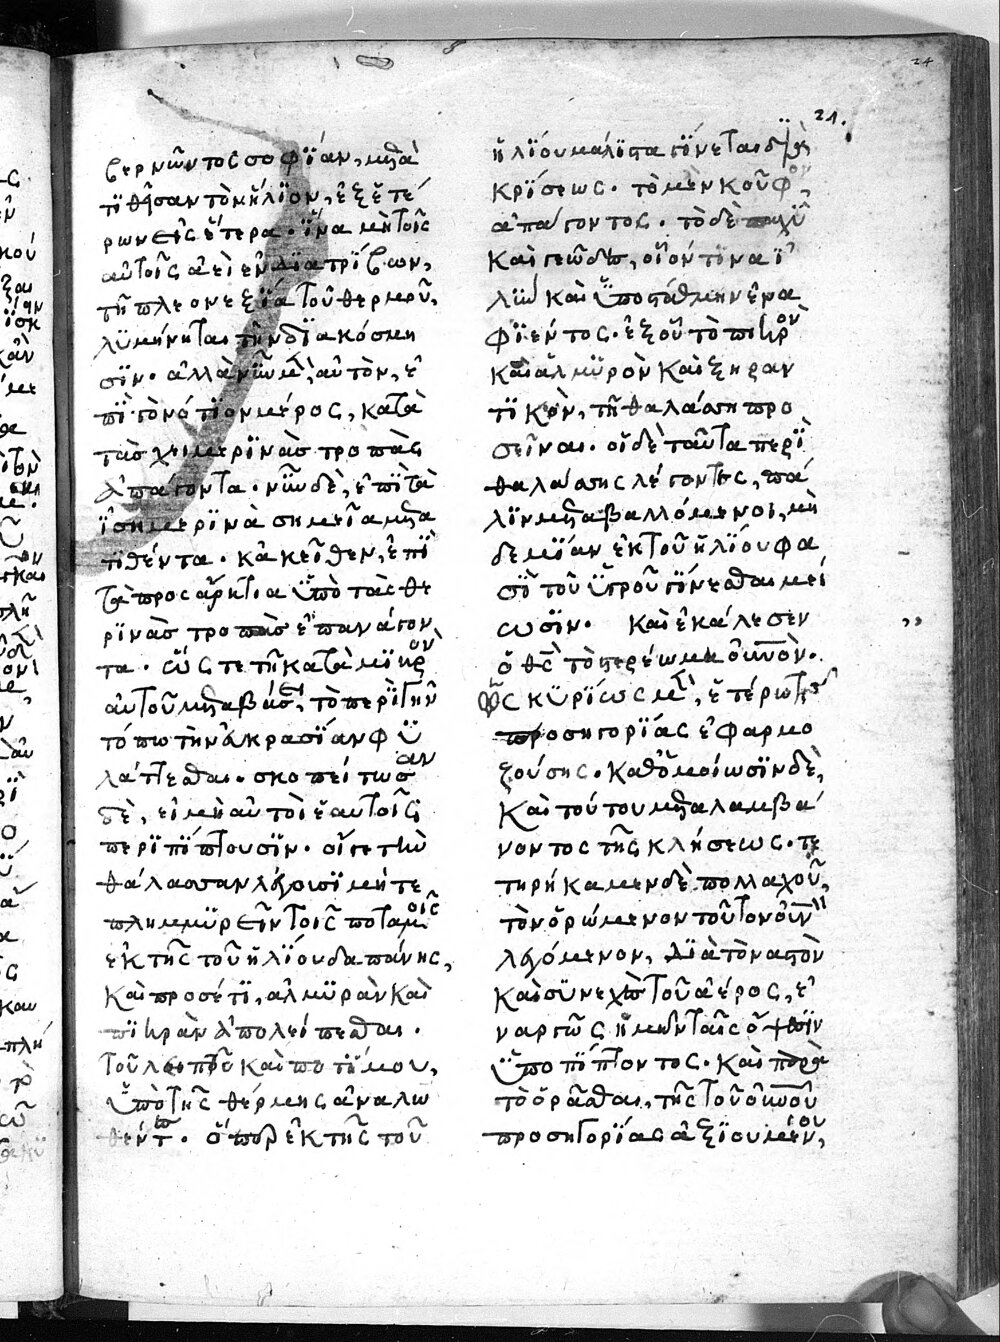 24
21.
βερνῶντος σοφΐαν, μετὰ
τϊθῆσαν τὸν ἥλϊον, ἐξ ἑτέ
ρων εἰς ἕτερα· ἵνα μὴ τοῖς
αὐτοῖς ἀεὶ ἐνδϊατρίβων,
τῇ πλεονεξίᾳ τοῦ θερμοῦ,
λϋμήνηται τὴν δϊακόσμη
σϊν. ἀλλὰ νῦν μὲν αὐτὸν, ἐ
πῒ τὸ νότϊον μέρος, κατὰ
τὰς χειμερϊνὰς τροπὰς
ἀπάγοντα· νῦν δὲ, ἐπῒ τὰ
ἰσημερϊνὰ σημεῖα μετα
τϊθέντα. κἀκεῖθεν, ἐπῒ
τὰ προσάρκτια ὑπὸ τὰς θε
ρϊνὰς τροπὰς ἐπανάγον
τα. ὥστε τῇ κατὰ μϊκρὸν
αὐτοῦ μεταβάσει, τῷ περὶ γῆν
τόπῳ τὴν εὐκρασΐαν φϋ
λάττεσθαι. σκοπείτωσαν
δὲ, εἰ μὴ αὐτοὶ ἑαυτοῖς
περϊπίπτουσϊν. οἵγε τὴν
θάλασσαν λέγουσϊ μήτε
πλημμϋρεῖν τοῖς ποταμοῖς
ἐκ τῆς τοῦ ἡλΐου δαπάνης,
καὶ προσέτϊ, ἁλμϋρὰν καὶ
πϊκρὰν ἀπολείπεσθαι.
τοῦ λεπτοῦ καὶ ποτΐμου,
ὑπὸ τῆς θέρμης ἀναλω
θέντος. ὅπερ ἐκ τῆς τοῦ
ἡλΐου μάλϊστα γΐνεται δϊα
κρίσεως. τὸ μὲν κοῦφον,
ἀπάγοντος. τὸ δὲ παχῢ
καὶ γεῶδες, οἷόν τινα ἰ
λῢν καὶ ὑποστάθμην ἐνα
φϊέντος. ἐξ οὗ τὸ πικρὸν
καὶ ἁλμϋρὸν καὶ ξηραν
τϊκὸν, τῇ θαλάσσῃ προ
σεῖναι. οἱ δὲ ταῦτα περῒ
θαλάσσης λέγοντες, πά
λϊν μεταβαλλόμενοι, μη
δεμΐαν ἐκ τοῦ ἡλΐου φα
σῒ τοῦ ὑγροῦ γΐνεσθαι μεί
ωσϊν. καὶ ἐκάλεσεν
ὁ θεὸς τὸ στερέωμα οὐρανόν.
ὡς κϋρΐως μὲν, ἑτέρῳ τῆς
προσηγορΐας ἐφαρμο
ζούσης. καθ' ὁμοίωσϊν δὲ,
καὶ τούτου μεταλαμβά
νοντος τῆς κλήσεως. τε
τηρήκαμεν δὲ πολλαχοῦ,
τὸν ὁρώμενον τοῦτον οὐρανὸν
λεγόμενον, διὰ τὸ ναστὸν
καὶ σϋνεχὲς τοῦ ἀέρος, ἐ
ναργῶς ἡμῶν ταῖς ὄψεσϊν
ὑποπίπτοντος. καὶ παρὰ
τὸ ὁρᾶσθαι, τῆς τοῦ οὐρανοῦ
προσηγορΐας ἀξϊουμένου,